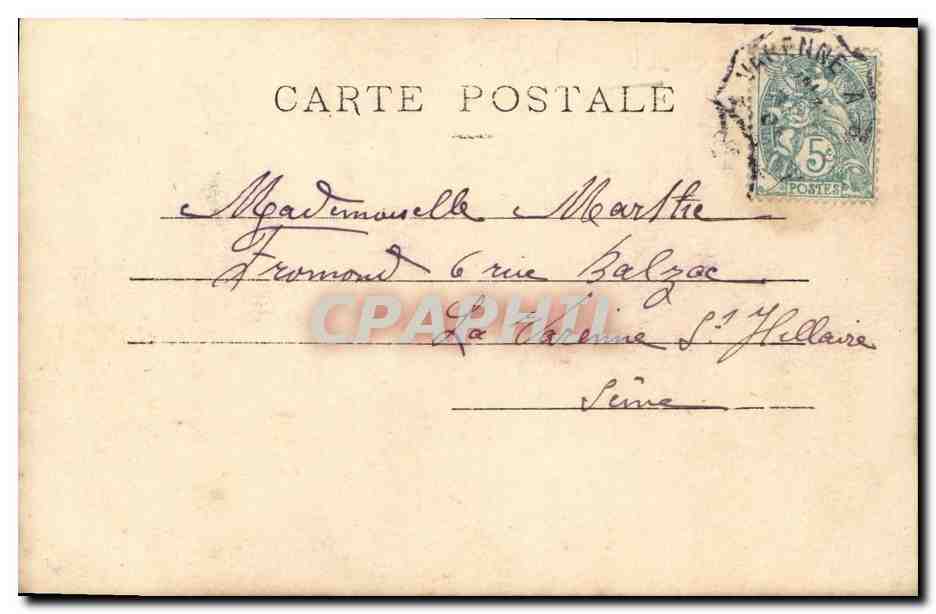 CARTE POSTALE
VARENNE A
5c
POSTES
Mademoiselle Marthe
Fromond 6 rue Balzac
CPAPHIL
La Varenne St Hillaire
Seine